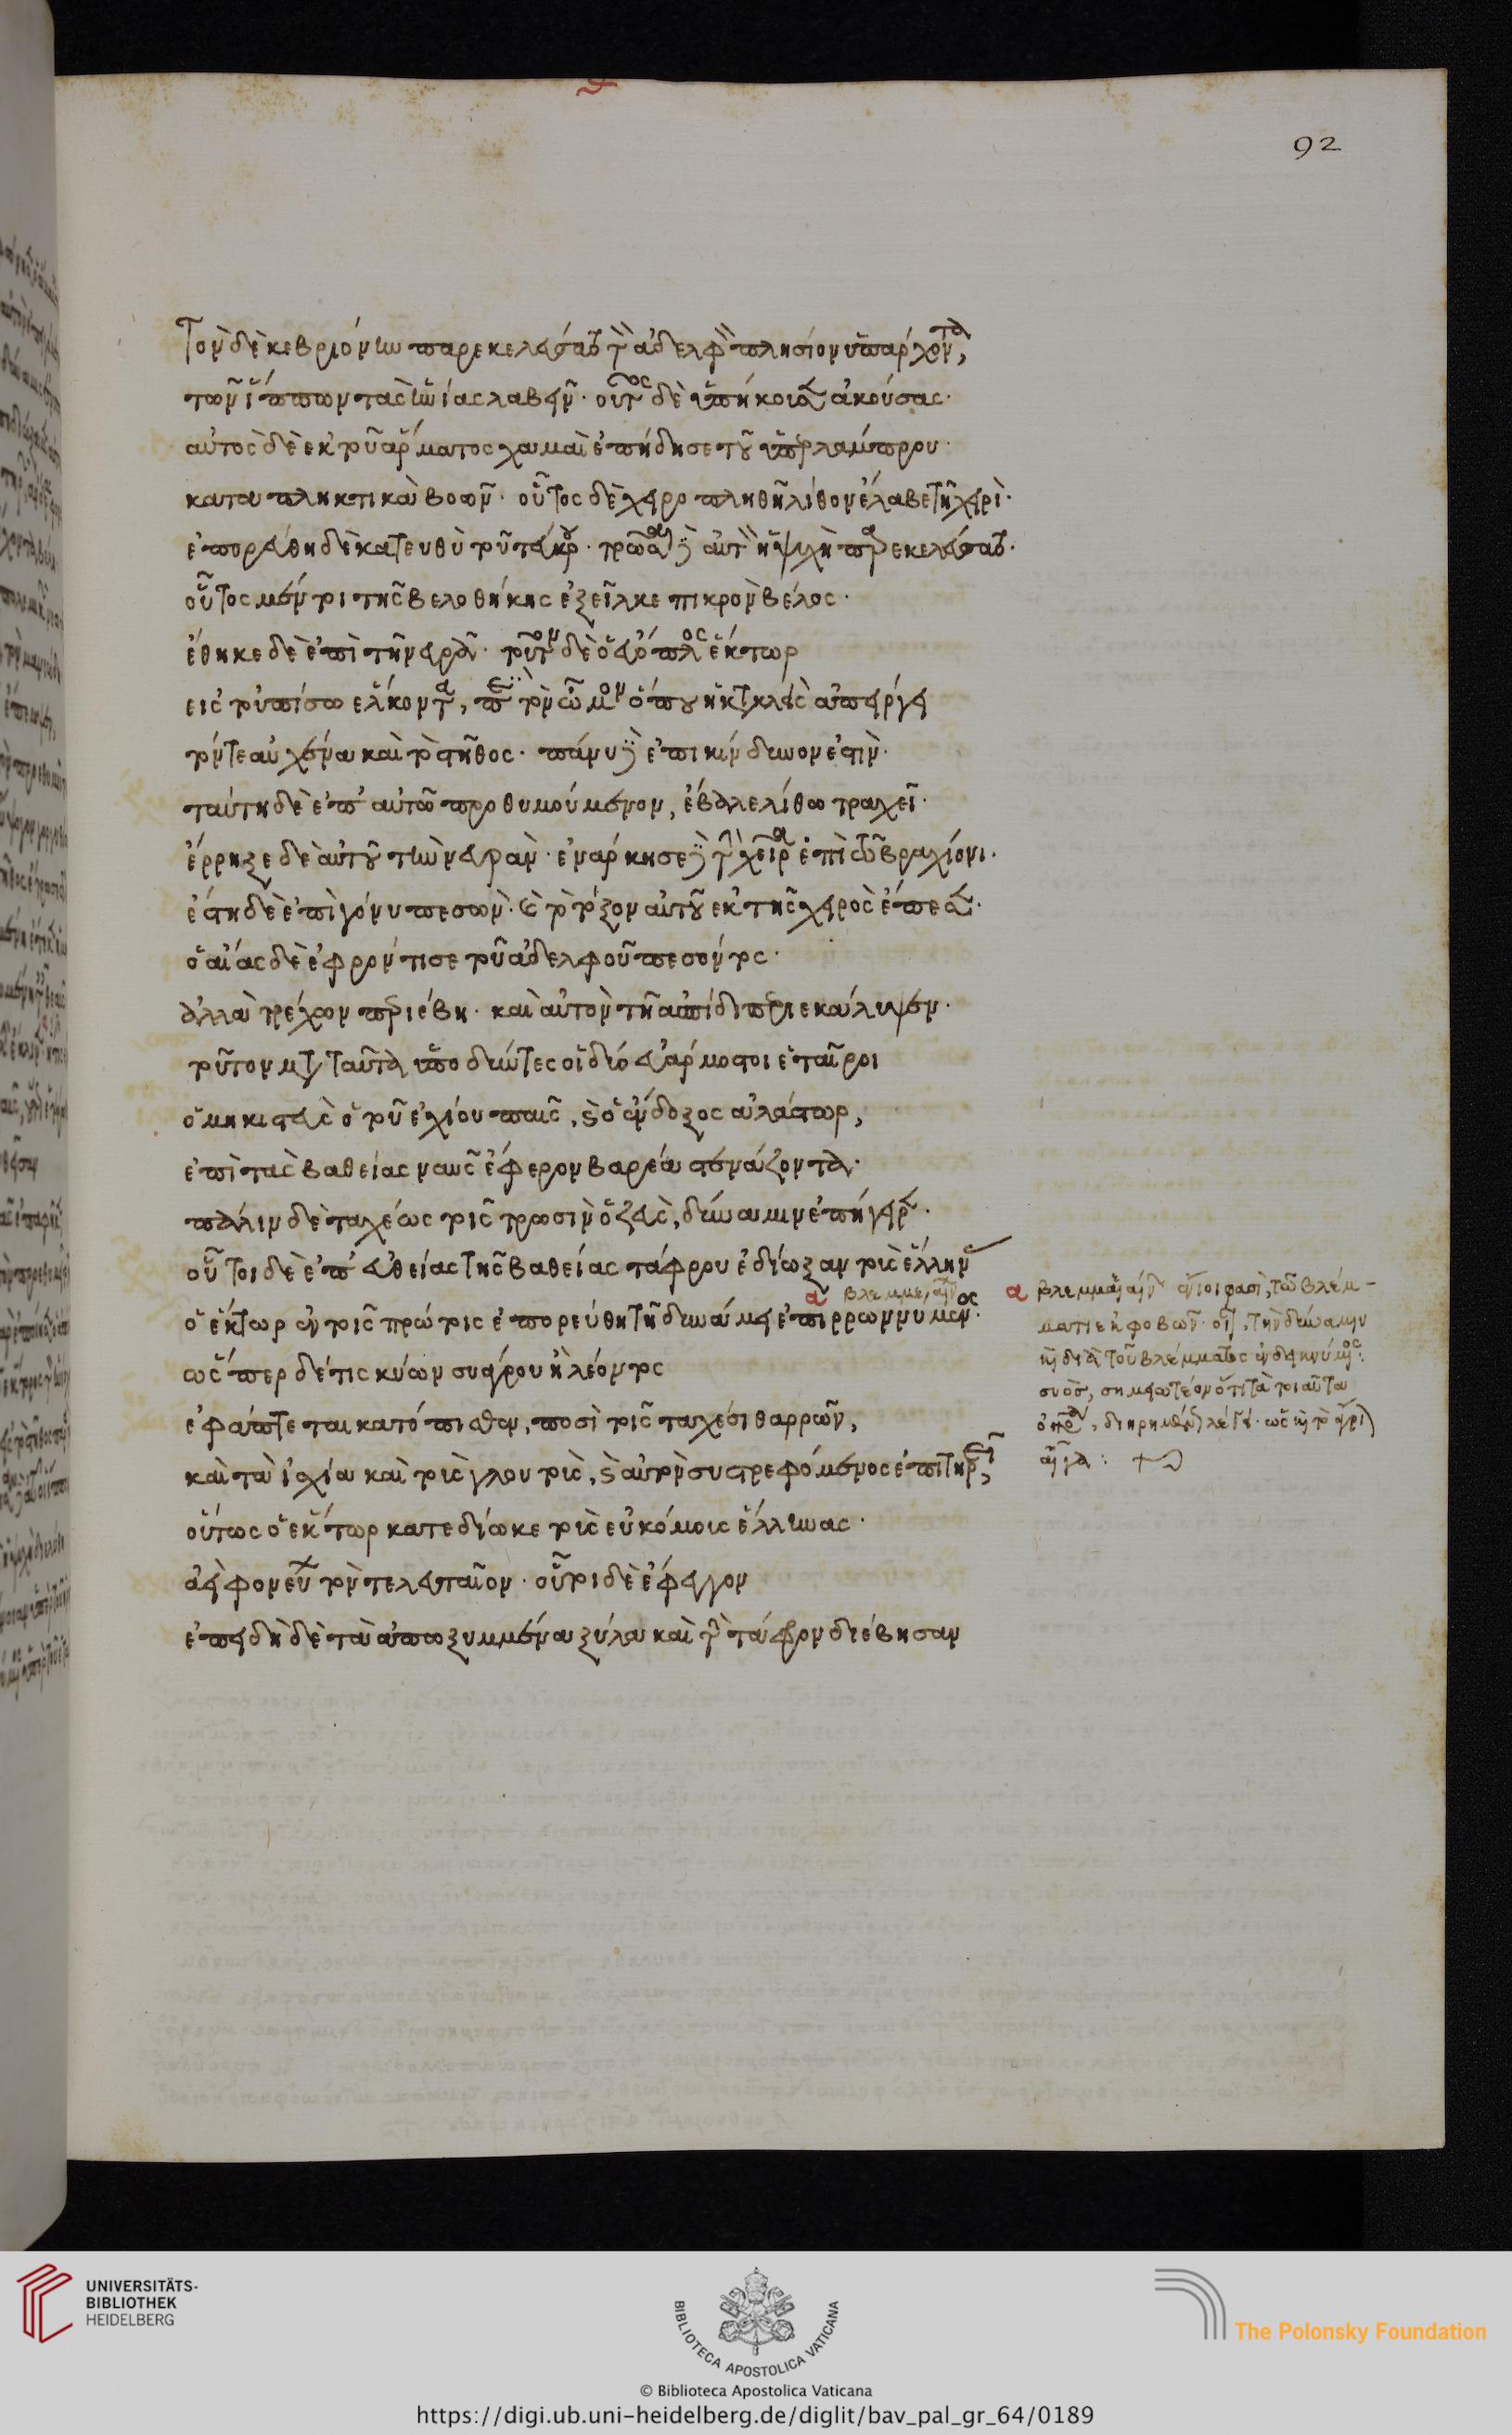 92
Τὸν δὲ κεβριόνην παρεκελεύσατο τὸν ἀδελφὸν πλησίον ὑπάρχοντα,
τῶν ἵππων τὰς ἡνίας λαβεῖν· οὗτος δὲ ὑπήκουσεν ἀκούσας·
αὐτὸς δὲ ἐκ τοῦ ἅρματος χαμαὶ ἐπήδησε τοῦ ὑπερλάμπρου·
καταπληκτικὰ βοῶν· οὗτος δὲ χειροπληθῆ λίθον ἔλαβε τῇ χειρὶ·
ἐπορεύθη δὲ κατευθὺ τοῦ τεύκρου· τρῶσαι δὲ αὐτὸν ἡ ψυχὴ παρεκελεύσατο·
οὗτος μέντοι τῆς βελοθήκης ἐξεῖλκε πικρὸν βέλος·
ἔθηκε δὲ ἐπὶ τὴν νευράν· τοῦτον δὲ ὁ εὔοπλος ἕκτωρ
εἰς τοὐπίσω ἕλκοντα, παρὰ τὸν ὦμον ὅπου ἡ κατακλεὶς ἀπείργει
τόν τε αὐχένα καὶ τὸ στῆθος· πάνυ δὲ ἐπικίνδυνον ἐστὶν·
ταύτη δὲ ἐπ' αὐτῶ προθυμούμενον, ἔβαλε λίθω τραχεῖ·
ἔρρηξε δὲ αὐτοῦ τὴν νευρὰν· ἐνάρκησε δὲ τὴν χεῖρα ἐπὶ τῶ βραχίονι·
ἔστη δὲ ἐπὶ γόνυ πεσὼν· καὶ τὸ τόξον αὐτοῦ ἐκ τῆς χειρὸς ἔπεσεν·
ὁ αἴας δὲ ἐφρόντισε τοῦ ἀδελφοῦ πεσόντος·
ἀλλὰ τρέχων περιέβη· καὶ αὐτὸν τῆ ἀσπίδι περιεκάλυψεν·
τοῦτον μετὰ ταῦτα ὑποδύντες οἱ δύο εὐάρμοστοι ἑταῖροι
ὁ μηκιστεὺς ὁ τοῦ ἐχίου παῖς, καὶ ὁ ἔνδοξος ἀλάστωρ,
ἐπὶ τὰς βαθείας ναῦς ἔφερον βαρέα στενάζοντα·
πάλιν δὲ ταχέως τοῖς τρωσὶν ὁ ζεὺς, δύναμιν ἐπήγειρεν·
οὗτοι δὲ ἐπ' εὐθείας τῆς βαθείας τάφρου ἐδίωξαν τοὺς ἕλληνας
ὁ ἕκτωρ ἐν τοῖς πρώτοις ἐπορεύθη τῆ δυνάμει ἐπιρρωννύμενος·
ὥσπερ δέ τις κύων συάγρου ἢ λέοντος
ἐφάπτεται κατόπισθεν, ποσὶ τοῖς ταχέσι θαρρῶν,
κατὰ ἰσχία καὶ τοὺς γλουτοὺς, καὶ αὐτὸν συστρεφόμενος ἐπιτηρεῖ,
οὕτως ὁ ἕκτωρ κατεδίωκε τοὺς εὐκόμους ἕλληνας·
ἀεὶ φονεύων τὸν τελευταῖον· οὗτοι δὲ ἔφευγον
ἐπειδὴ δὲ τὰ ἀπωξυμμένα ξύλα καὶ τὴν τάφρον διέβησαν
α βλεμμεαίνων ἔνιοι φασὶ, τῶ βλέμ-
ματι ἐκφοβῶν· τὴν δύναμιν
διὰ τοῦ βλέμματος ἐνδεικνύμενος:
συὸς, σημειωτέον ὅτι τὰ τοιαῦτα
UNIVERSITÄTS-
BIBLIOTHEK
HEIDELBERG
BIBLIOTECA APOSTOLICA VATICANA
The Polonsky Foundation
© Biblioteca Apostolica Vaticana
https://digi.ub.uni-heidelberg.de/diglit/bav_pal_gr_64/0189